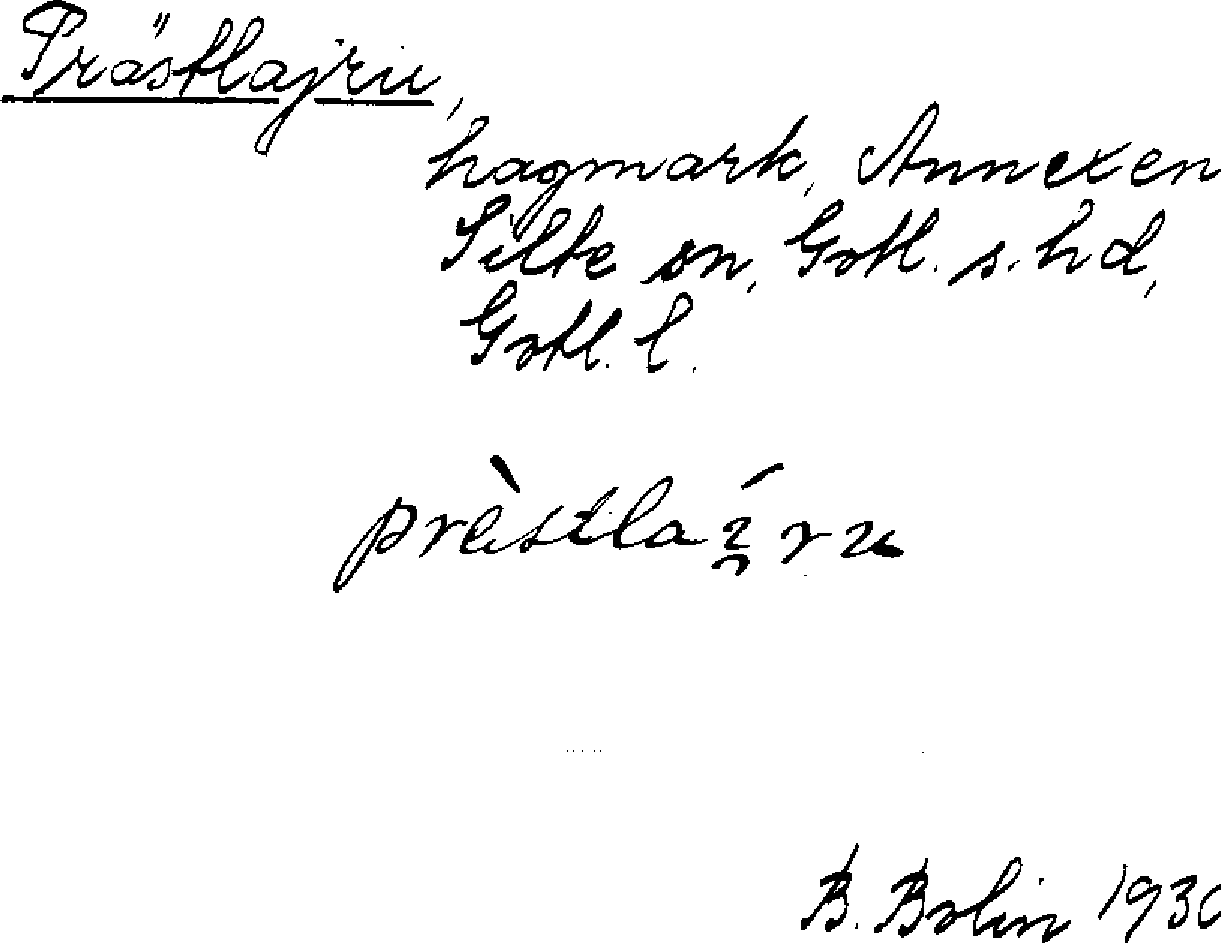 Prästlajru,
hagmark, Annexen
Silte sn, Gotl. s. hd,
Gotl. l.
prästlai̯ru
B. Bolin 1930